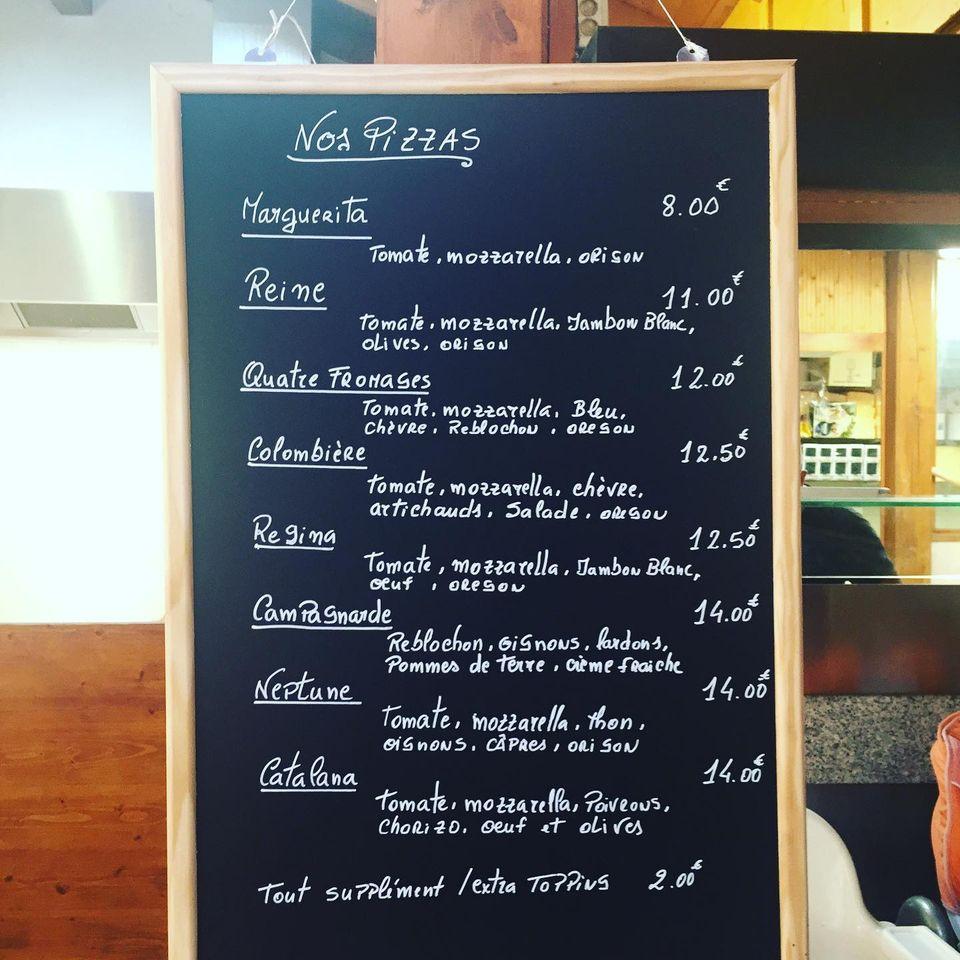 Nos Pizzas
Marguerita 8.00€
Tomate, mozzarella, orison
Reine 11.00€
Tomate, mozzarella, Jambon Blanc,
olives, orison
Quatre Fromages 12.00€
Tomate, mozzarella, Bleu,
chèvre, Reblochon, oregon
Colombière 12.50€
Tomate, mozzarella, chèvre,
artichauds, Salade, oregon
Regina 12.50€
Tomate, mozzarella, Jambon Blanc,
oeuf, oregon
Campagnarde 14.00€
Reblochon, oignons, lardons,
Pommes de terre, crème fraiche
Neptune 14.00€
Tomate, mozzarella, thon,
oignons, câpres, orison
Catalana 14.00€
Tomate, mozzarella, Poivrons,
chorizo, oeuf et olives
Tout supplément / extra Topping 2.00€